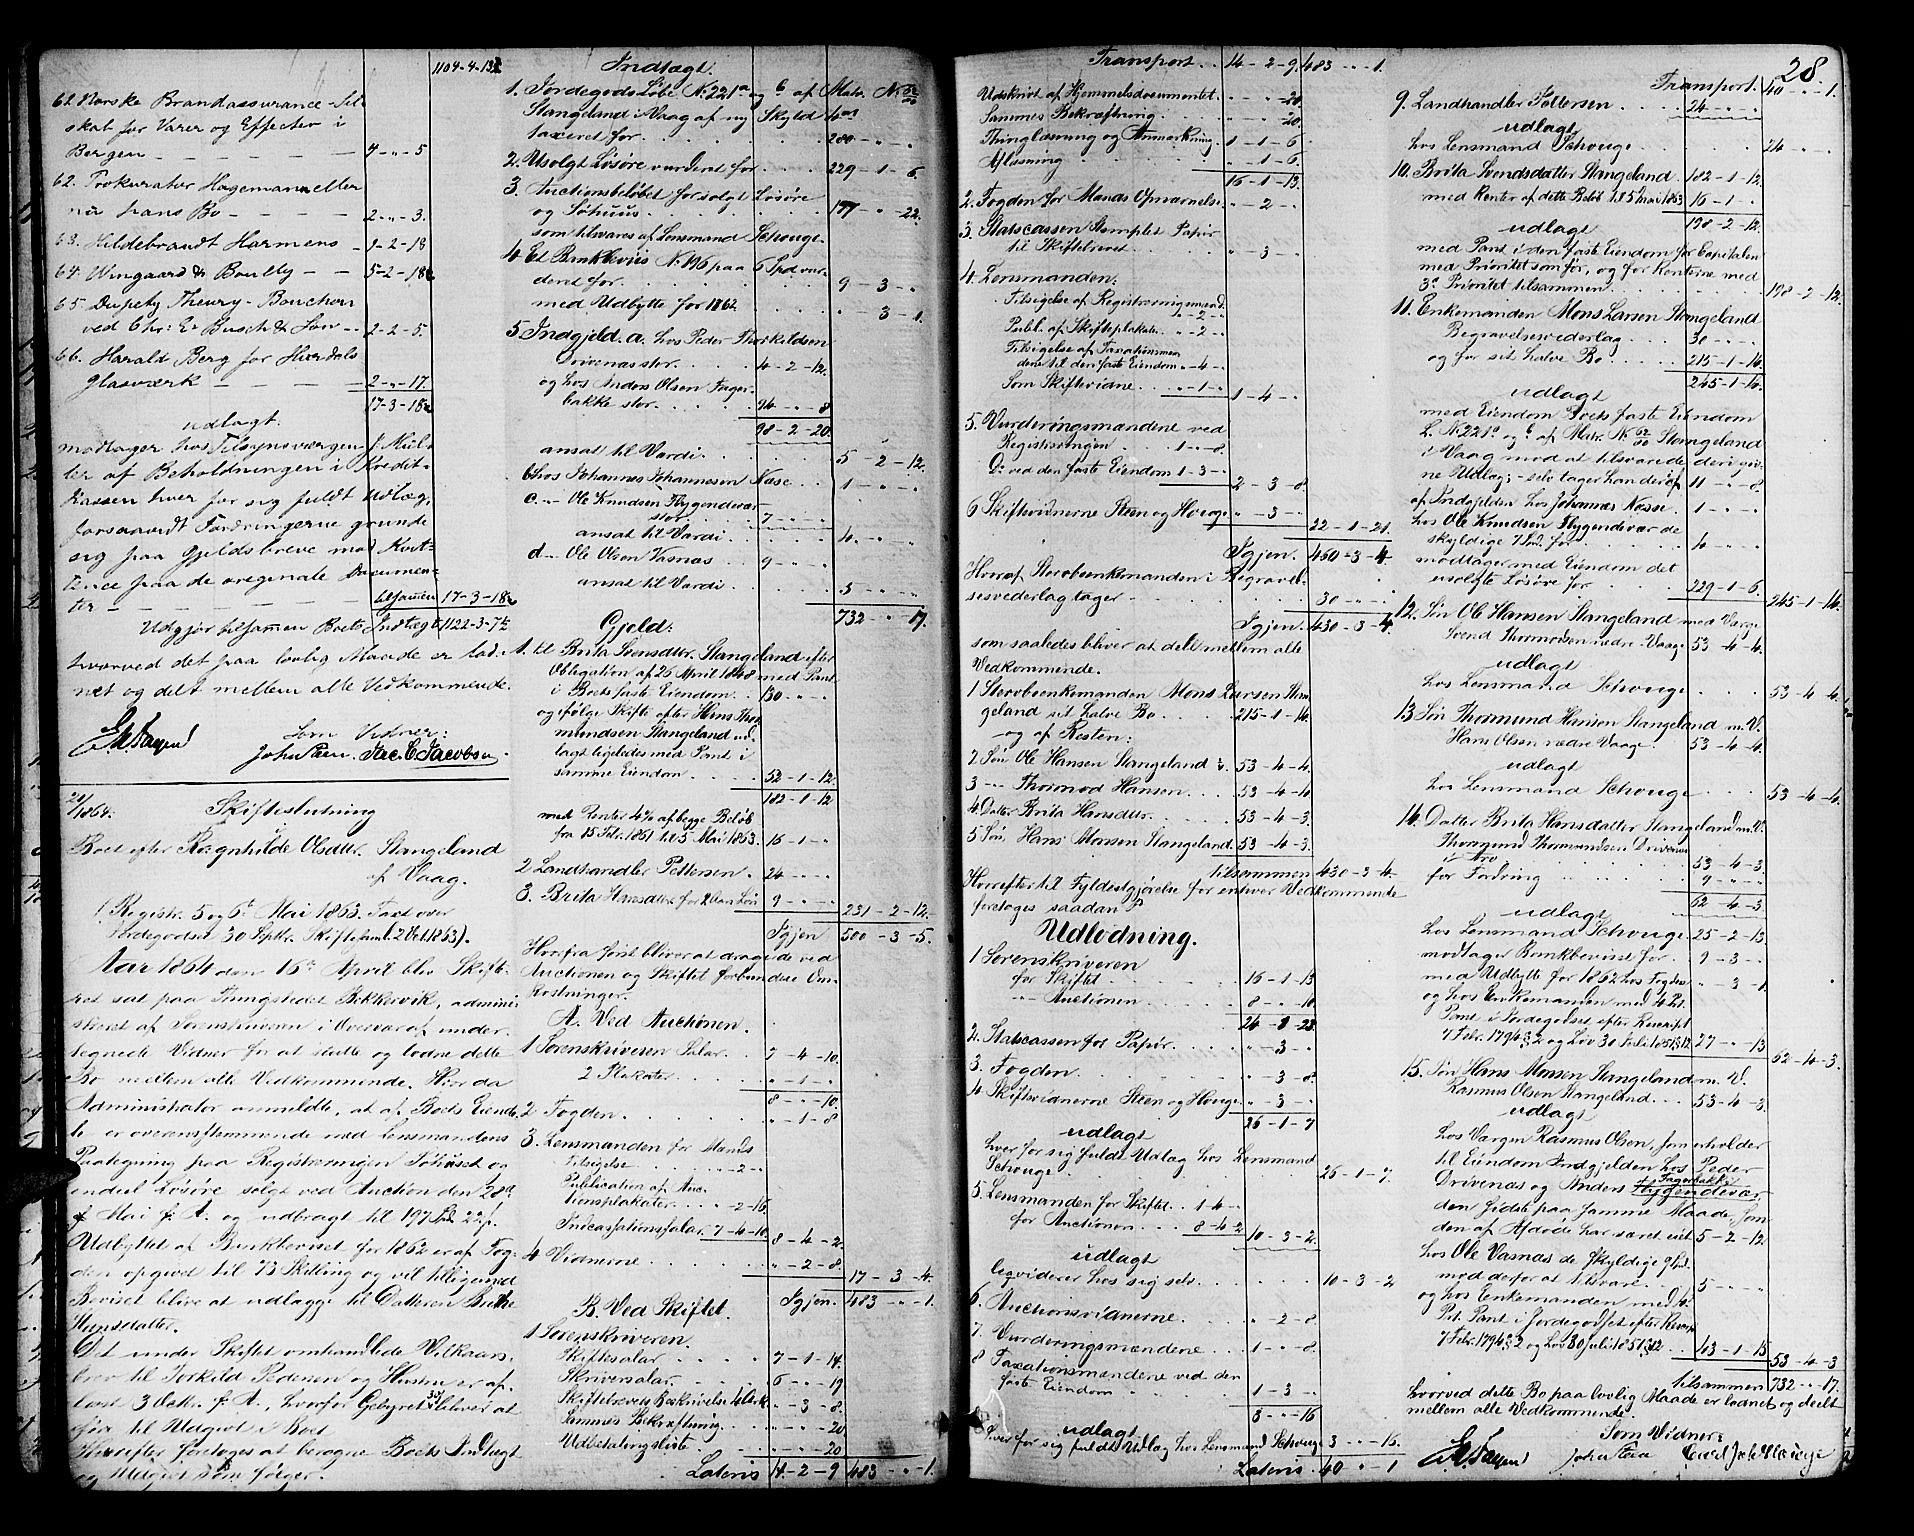 1104-4-13½
61. Norske Brandassurance-Sel-
skab for Varer og Effecter i
Bergen - - - - - 4-"-5
62. Prokurator Hagemann eller
nu hans Bo - - - - 2-"-3.
63. Hildebrandt Harmens - 9-2-18
64. Wingaard & Boully - - 5-2-18½
65. Dupety Theury-Bouchon
ved Chr. Er. Busch & Søn -- 2-2-5.
66. Harald Berg for Hurdals
Glasværk - - - - 2-"-17.
17-3-18½
udlagt.
modtager hos Tilsynsværgen J. Mül-
ler af Beholdningen i Kredit-
kassen hver for sig fuldt Udlæg,
forsaavidt Fordringerne grunde
sig paa Gjeldsbreve mod Kvit-
tence paa de originale Documen-
ter - - - - - tilsammen 17-3-18½
Udgjør tilsammen Boets Indtægt 1122-3-7½
hvorved det paa lovlig Maade er lod-
net og delt mellem alle Vedkommende.
Som Vidner:
John Steen. Jac. C. Jacobsen
20/1 1864. Skifteslutning
i
Boet efter Ragnhilde Olsdtr. Stangeland
af Vaag.
(Registr. 5 og 6te Mai 1863. Taxt over
Jordegodset 30 Septbr. Skiftesaml. 2 Oct 1863).
Aar 1864 den 16de April blev Skifte-
ret sat paa Thingstedet Bekkervik, admini-
streret af Sorenskriveren i Overvær af under-
tegnede Vidner for at slutte og lodne dette
Bo mellem alle Vedkommende. Hvor da
Administrator anmeldte, at af Boets Eiende-
le er overensstemmende med Lensmandens
Paategning paa Registreringen Søhuset og
endeel Løsøre solgt ved Auction den 28de
Mai f. A. og udbragt til 197 Spd 22 s.
Udbyttet af Bankbeviset for 1862 er af Fog-
den opgivet til 73 Skilling og vil tilligemed
Beviset blive at udlægge til Datteren Brithe
Hansdatter.
Det under Skiftet omhandlede Vilkaars-
brev til Torkild Pedersen og Hustru er af-
læst 3 Octbr. f. A., hvorfor Gebyret 35 s bliver at
føre til Udgivt i Boet.
Herefter foretoges at beregne Boets Indtægt
og Udgivt som følger.
Indtægt.
1. Jordegods Løbe No 221a og b af Matr. No 62/00
Stangeland i Vaag af ny Skyld
taxeret for . . . . . 280-"-"
2. Usolgt Løsøre vurderet for . . . 229-1-6
3. Auctionsbeløbet for solgt Løsøre
og Søhuus . . . . . 197-"-22.
som tilsvares af Lensmand Schouge.
4. Et Bankbeviis No 196 paa 6 Spd vur-
deret for . . . . . 9-3-"
med Udbytte for 1862 . . . . "-3-1.
5. Indgjeld. a. hos Peder Thorkildsen
Drivenæs stor . . . 4-2-12.
og hos Anders Olsen Fager-
bakke stor . . . . 94-"-8
98-2-20.
ansat til Værdi . . . . 5-2-12.
b. hos Johannes Johannessen Næse . . 1-"-"
c. -"- Ole Knudsen Flyggendevær
stor . . . . 7-"-"
ansat til Værdi . . . . 4-"-"
d. -"- Ole Olsen Vasnæs . . 9-"-"
ansat til Værdi . . . 5-"-"
732-"-17.
Gjeld:
1. til Brita Svendsdtr. Stangeland efter
Obligation af 26 April 1848 med Pant
i Boets faste Eiendom . . 130-"-"
og ifølge Skifte efter Hans Thor-
mundsen Stangeland ud-
lagt ligeledes med Pant i
samme Eiendom . . . 52-1-12
182-1-12
med Renter 4% af begge Beløb
fra 15 Febr. 1861 til 5 Mai 1863. 16-1-"
2 Landhandler Pettersen . 24-"-"
3. Brita Hansdtr. for 2 Aars Løn 9-"-"
231-2-12.
Igjen 500-3-5.
Herfra først bliver at drage de ved
Auctionen og Skiftet forbundne Om-
kostninger.
A. Ved Auctionen.
1 Sorenskriveren Salær . . 7-4-10.
2 Plakater . . . . "-1-"
8-"-10.
2 Fogden . . . . . "-1-8
3. Lensmanden for Mands
Tilsigelse . . . . "-2-"
Publication af Auc-
tionsplakater . . "-2-16.
Indcassationssalær. 7-4-10.
8-4-2
4 Vidnerne . . . . "-2-8.
17-3-4.
Igjen. 483-"-1.
B. Ved Skiftet.
1 Sorenskriveren.
Skiftesalær . . . . 7-1-14.
Skriversalær . . . . 6-"-19
Skiftebrevets Beskrivelse 4 Ark "-3-8.
Sammes Bekræftning . . "-"-20
Udbetalingsliste . . . "-"-20
Lateris 14-2-9 483-"-1.
28.
Transport . . 14-2-9. 483-"-1.
Udskrivt af Hjemmelsdocumentet. "-"-20.
Sammes Bekræftning . . . "-"-20.
Thinglæsning og Anmerkning. 1-1-6
Aflæsning . . . . "-1-6.
16-1-13.
2. Fogden for Mands Opnævnelse . "-2-"
3. Statscassen Stemplet Papir
til Skiftebrevet . . . . "-3-"
4. Lensmanden:
Tilsigelse af Registreringsmænd. "-2-"
Publ. af Skifteplakater . "-2-"
Tilsigelse af Taxationsmæn-
dene til den faste Eiendom "-4-"
Som Skiftevidne . . . "-1-"
1-4-"
5. Vurderingsmændene ved
Registreringen . . 1-"-8.
Do ved den faste Eiendom 1-3-"
2-3-8.
6 Skiftevidnerne Steen og Houge. "-3-"
22-1-21.
Igjen. 460-3-4.
Heraf Sterboenkemanden i Begravel-
sesvederlag tager . . . . 30-"-"
Igjen. 430-3-4.
som saaledes bliver at dele mellem alle
Vedkommende.
1 Sterboenkemanden Mons Larsen Stan-
geland sit halve Bo . . . 215-1-14.
og af Resten:
2 Søn Ole Hansen Stangeland . 53-4-4.
3 -"- Thormod Hansen . . . 53-4-4.
4. Datter Brita Hansdtr. . . . 53-4-3.
5 Søn, Hans Monsen Stangeland. 53-4-3.
tilsammen 430-3-4.
Herefter til Fyldestgjørelse for enhver Vedkommende
foretoges saadan
Udlodning.
1 Sorenskriveren
for Skiftet . . . . 16-1-13
-"- Auctionen . . . . 8-"-10.
24-1-23.
2. Statscassen for Papir . . . "-3-"
3. Fogden . . . . . "-3-8.
4. Skiftevidnerne Steen og Houge. "-3-"
26-1-7
udlagt
hver for sig fulde Udlag hos Lensmand
Schouge . . . . . 26-1-7.
5. Lensmanden for Skiftet. 1-4-"
for Auctionen . . . 8-4-2
10-3-2.
udlagt
ligviderer hos sig selv . . . . 10-3-2
6. Auctionsvidnerne . . . "-2-8.
7. Vurderingsmændene . . 1-"-8.
8 Taxationsmændene ved den
faste Eiendom . . . 1-3-"
3-"-16
udlagt
hver for sig fuldt Udlag hos Lensmand Schouge 3-"-16.
Lateris. 40-"-1
Transport. 40-"-1.
9. Landhandler Pettersen . . . 24-"-"
udlagt
hos Lensmand Schouge . . . . 24-"-"
10. Brita Svendsdatter Stangeland 182-1-12.
med Renter af dette Beløb til 5 Mai 1863 16-1-"
198-2-12.
udlagt
med Pant i den faste Eiendom for Capitalen
med Prioritet som før, og for Renterne med
3die Prioritet tilsammen . . . 198-2-12.
11. Enkemanden Mons Larsen Stangeland
Begravelsesvederlag . . 30-"-"
og for sit halve Bo . . . 215-1-14
245-1-14.
udlagt
med Eiendom Boets faste Eiendom
L. No 221a og b af Matr. No 62/00 Stangeland
i Vaag mod at tilsvare deri giv-
ne Udlag; - selv tager han deraf 11-"-8.
af Indgjelden hos Johannes Næsse. 1-"-"
hos Ole Knudsen Flyggendevær de
skyldige 7 Spd. for . . . . 4-"-"
modtager med Eiendom det
usolgte Løsøre for . . . 229-1-6.
245-1-14.
12. Søn Ole Hansen Stangeland med Værge
Svend Thormodsen nedre Vaage 53-4-4.
udlagt
hos Lensmand Schouge . . . 53-4-4.
13. Søn Thormund Hansen Stangeland m. V.
Hans Olsen nedre Vaage . 53-4-4.
udlagt
hos Lensmand Schouge . . . 53-4-4.
14. Datter Brita Hansdatter Stangeland m. V.
Thormund Thormundsen Drivenæs
53-4-3.
for Fordring . . . . 9-"-"
62-4-3.
udlagt
hos Lensmand Schouge . 25-2-13.
modtager Bankbeviset for . . 9-3-"
med Udbytte for 1862 hos Fogden "-3-1.
og hos Enkemanden med 4 Pct.
Pant i Jordegodset efter Rescript
7 Febr. 1794 § 2 og Lov 30 Juli 1851 § 12. 27-"-13
62-4-3.
15. Søn Hans Monsen Stangeland m. V.
Rasmus Olsen Stangeland . . 53-4-3.
udlagt
hos Værgen Rasmus Olsen, som erholder
til Eiendom Indgjelden hos Peder
Drivenæs og Anders Flyggendevær Fagerbakke
den sidste paa samme Maade, som
den af Afdøde har været eiet 5-2-12.
hos Ole Vasnæs de skyldige 9 Spd.
mod derfor at tilsvare . . 5-"-"
og hos Enkemanden med 4
Pct. Pant i Jordegodset efter Rescript
7 Febr. 1794 § 2 og Lov 30 Juli 1851 § 12. 43-1-15
53-4-3
tilsammen 732-"-17.
hvorved dette Bo paa lovlig Maade er lodnet og deelt
mellem alle Vedkommende.
Som Vidner:
John Steen